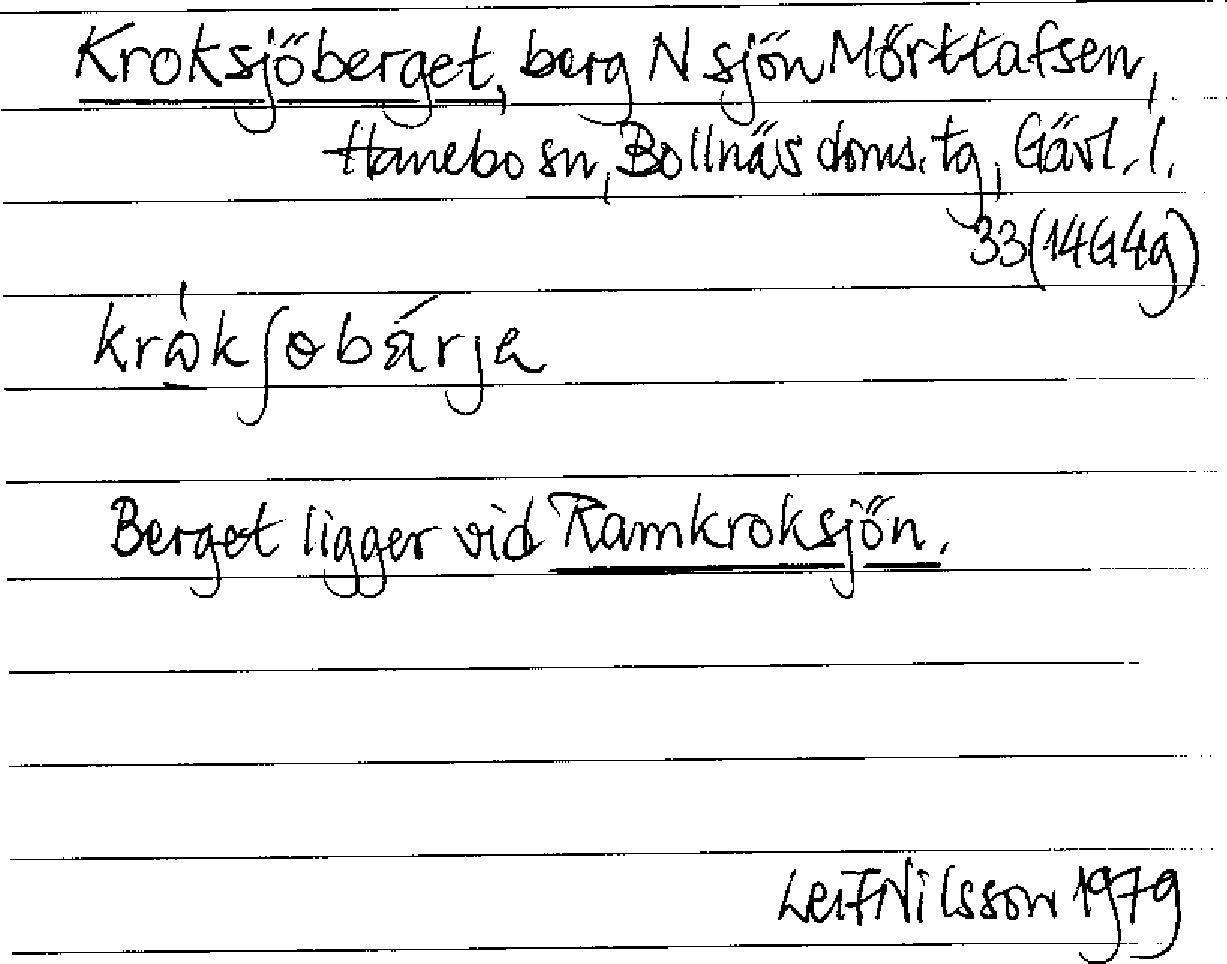 Kroksjöberget, berg N sjön Mörttafsen,
Hanebo sn, Bollnäs doms. tg, Gävl. l.
33 (14G4g)
Berget ligger vid Ramkroksjön.
Leif Nilsson 1979